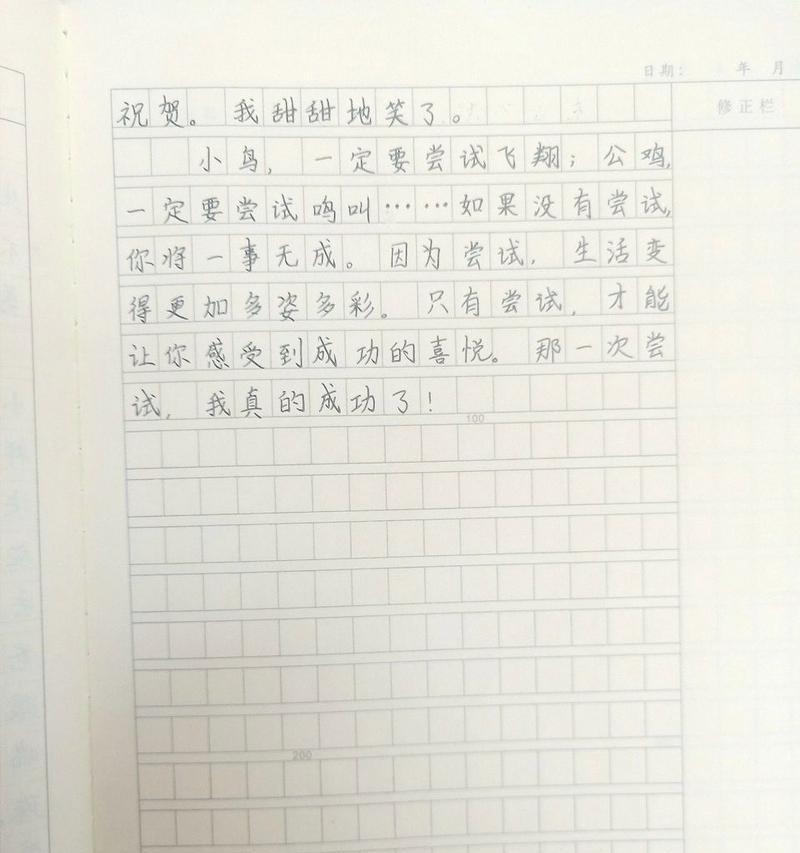 日期： 年 月
修正栏
祝贺。我甜甜地笑了。
小鸟，一定要尝试飞翔；公鸡，
一定要尝试鸣叫……如果没有尝试，
你将一事无成。因为尝试，生活变
得更加多姿多彩。只有尝试，才能
让你感受到成功的喜悦。那一次尝
试，我真的成功了！
100
200